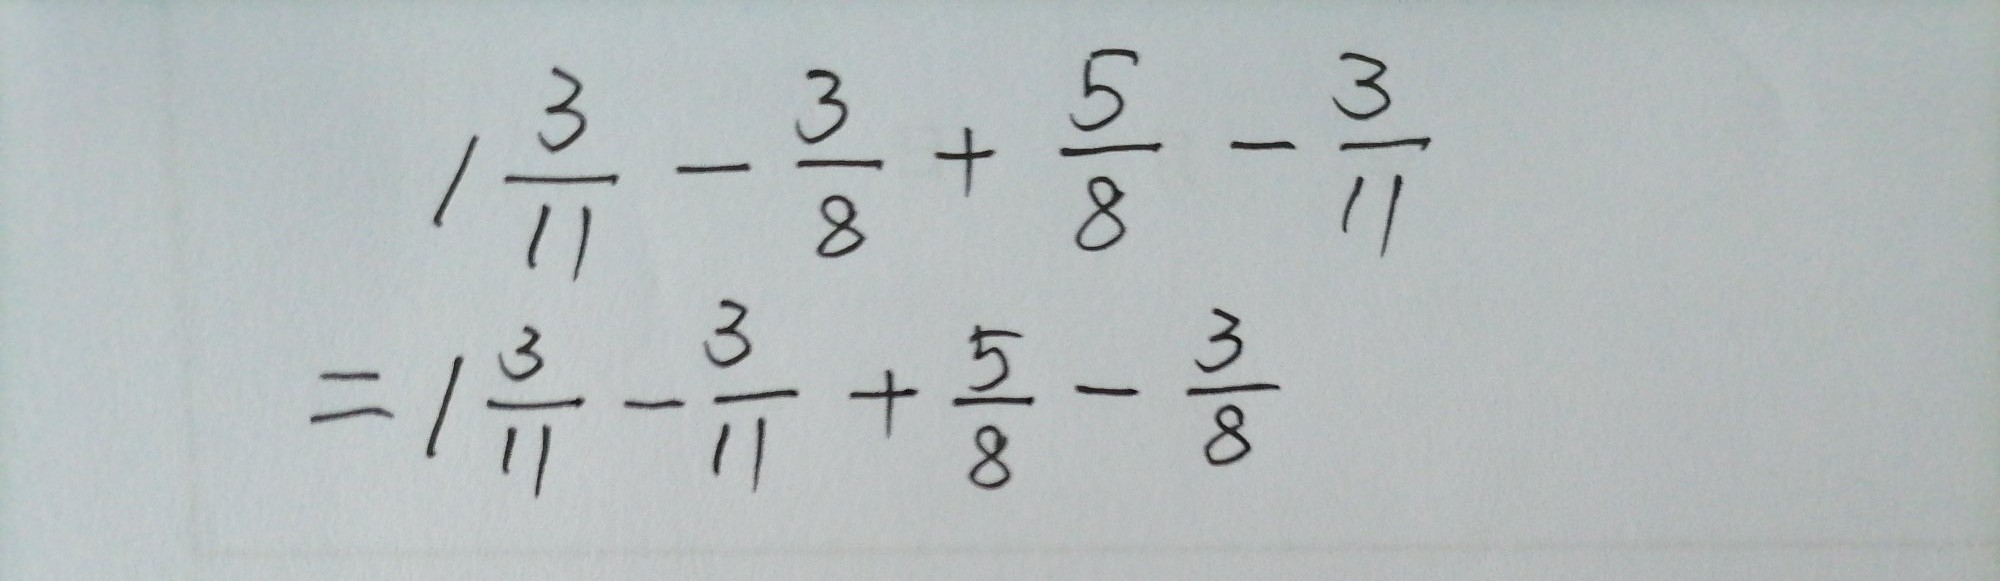 1 3/11 - 3/8 + 5/8 - 3/11
= 1 3/11 - 3/11 + 5/8 - 3/8